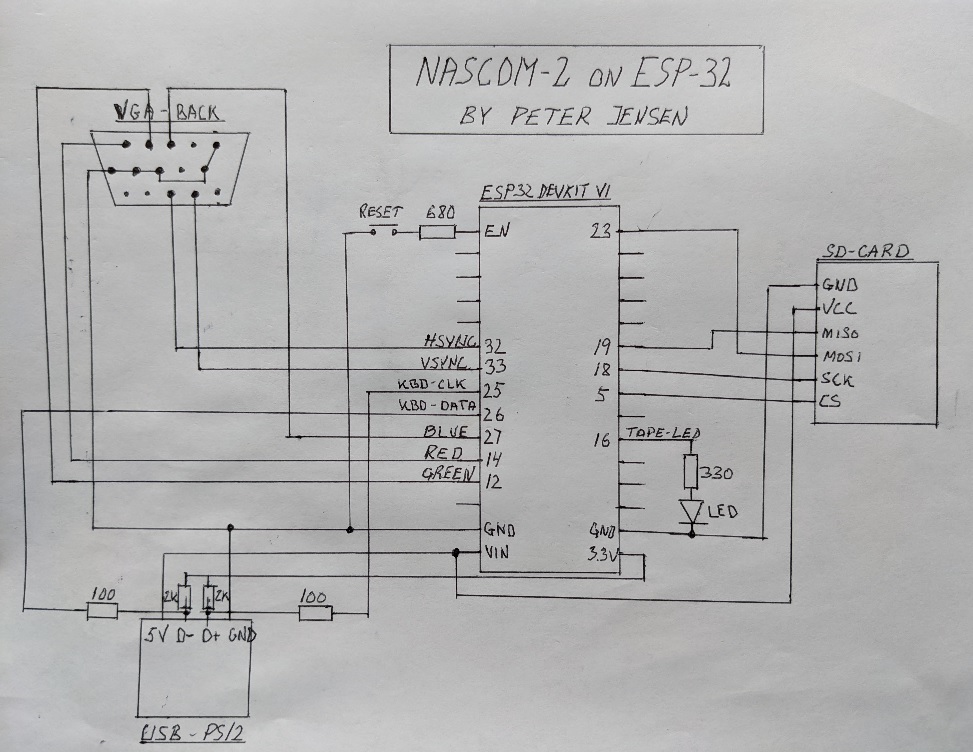 NASCOM-2 ON ESP-32
BY PETER JENSEN
VGA-BACK
ESP32 DEVKIT V1
RESET
680
EN
23
SD-CARD
GND
VCC
MISO
MOSI
SCK
CS
HSYNC
32
19
VSYNC
33
18
KBD-CLK
25
5
KBD-DATA
26
BLUE
27
16
TAPE-LED
RED
14
330
GREEN
12
LED
GND
GND
VIN
3.3V
100
2K
2K
100
5V D- D+ GND
USB-PS/2